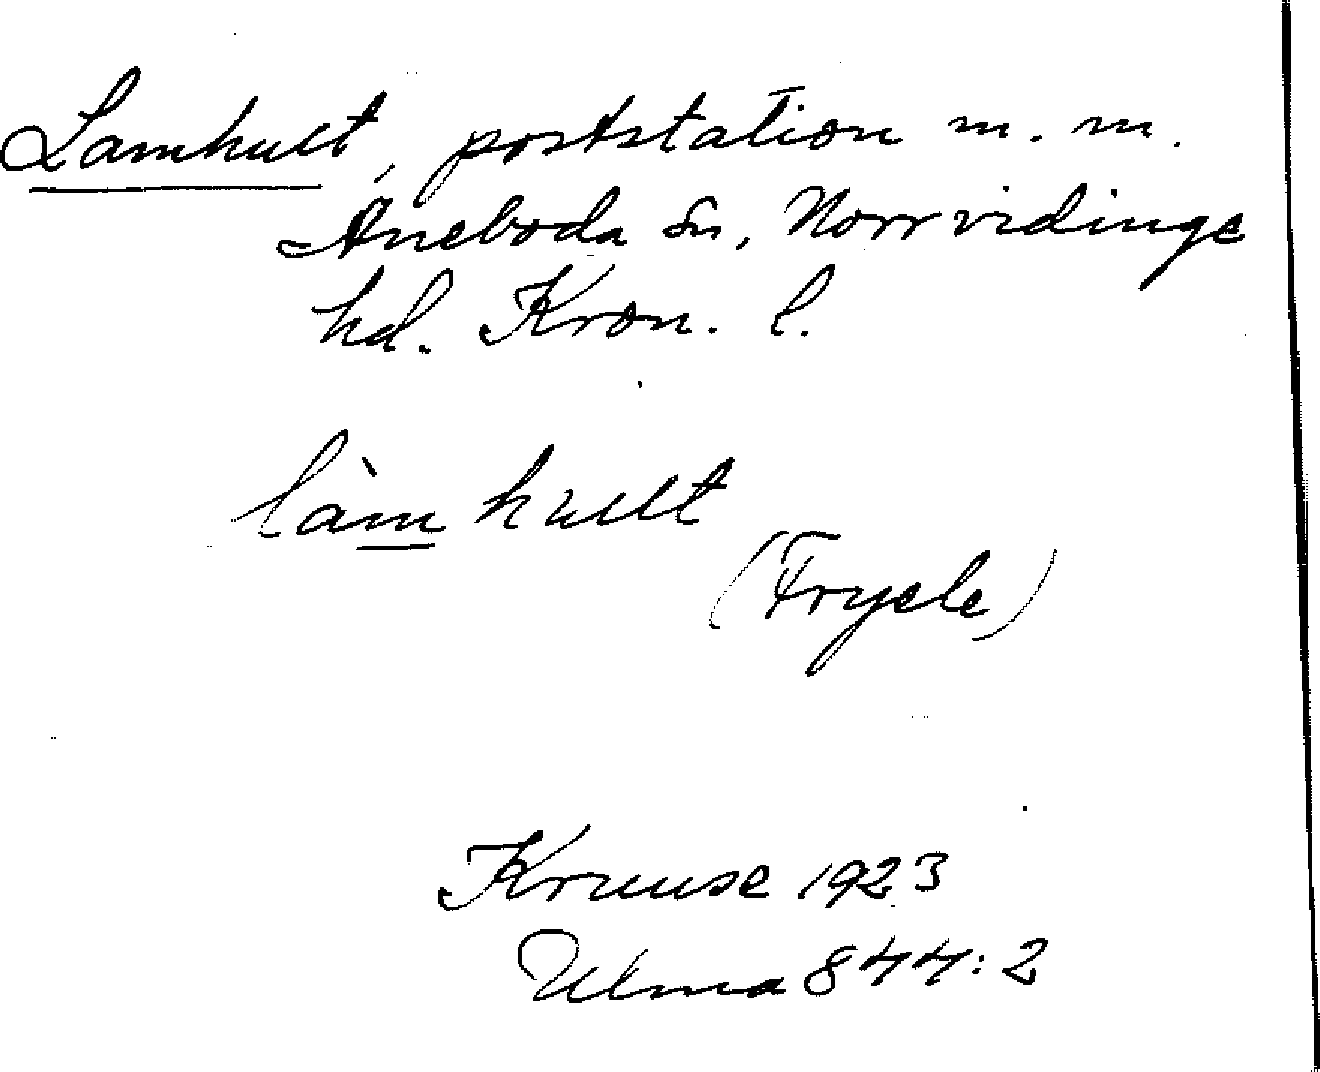 Lamhult, poststation m. m.
Aneboda sn, Norrvidinge
hd. Kron. l.
làm hullt
(Frycle)
Kruuse 1923
Ulma 844:2